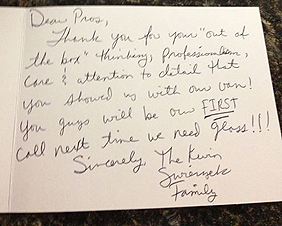 Dear Pros,
Thank you for your "out of
the box" thinking, professionalism,
care & attention to detail that
you showed us with our van!
You guys will be our FIRST
call next time we need glass!!!
Sincerely, The Kevin
Family